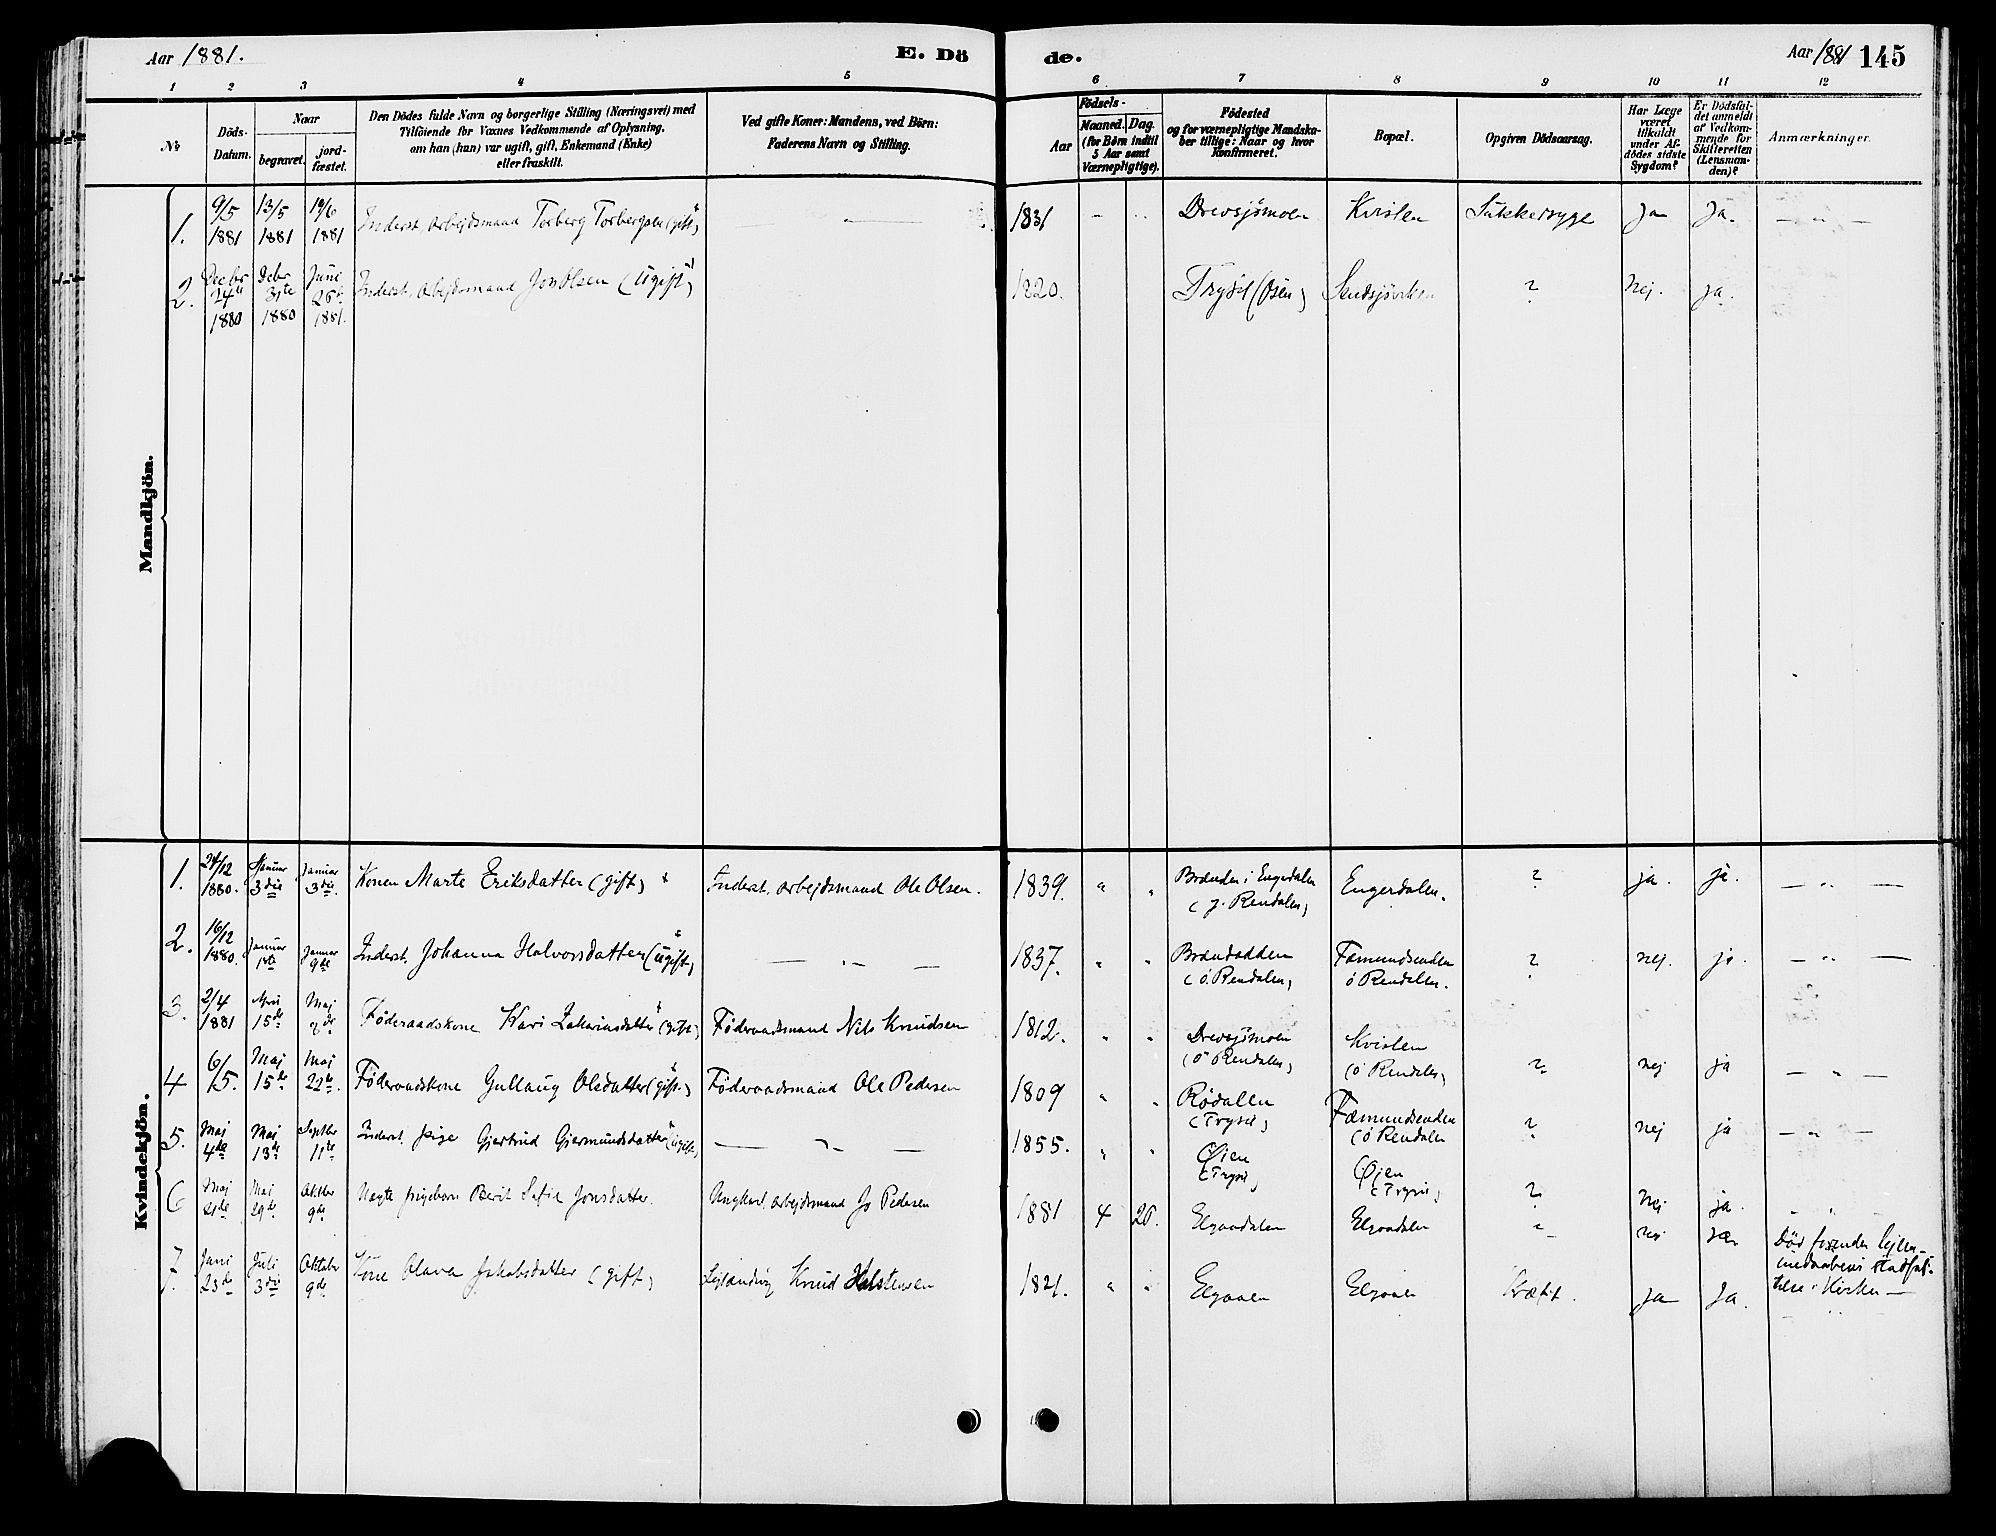 Aar 1881.
E. Dö
de.
Aar 1881 145
1 2 3 4 5 6 7 8 9 10 11 12
No
Döds-
Datum.
Naar
begravet.
jord-
fæstet.
Den Dödes fulde Navn og borgerlige Stilling (Næringsvei) med
Tilföiende for Voxnes Vedkommende af Oplysning,
om han (hun) var ugift, gift, Enkemand (Enke)
eller fraskilt.
Ved gifte Koner: Mandens, ved Börn:
Faderens Navn og Stilling.
Födsels-
Aar
Maaned. Dag.
(for Börn indtil
5 Aar samt
Værnepligtige).
Födested
og for værnepligtige Mandska-
ber tillige: Naar og hvor
konfirmeret.
Bopæl.
Opgiven Dödsaarsag.
Har Læge
været
tilkaldt
under Af-
dödes sidste
Sygdom?
Er Dödsfal-
det anmeldt
af Vedkom-
mende for
Skifteretten
(Lensman-
den)?
Anmærkninger.
Mandkjön.
1. 9/5 1881 13/5 1881 19/6 1881 Inderst, arbejdsmand Torberg Torbergsen (gift) — 1831 - " Drevsjömoen Kvisten Sukkersyge Ja Ja. — " —
2. Decbr 24de 1880 Debr 31te 1880 Juni 26de 1881. Inderst, arbejdsmand Jon Olsen (Ugift) 1820. Trysil (Osen) ? nej. ja.
Kvindekjön.
1. 24/12 1880. Januar 3die Januar 3die. Konen Marte Eriksdatter (gift) Inderst, arbejdsmand Ole Olsen. 1839. " " Brænden i Engerdalen (y. Rendalen) Engerdalen. ? ja. ja. — " —
2. 16/12 1880. Januar 1ste Januar 9de Inderst. Johanna Halvorsdatter (ugift) — " — 1837. " " Brændodden (ö. Rendalen) Fæmundsenden ö Rendalen. ? nej. ja. — " —
3. 2/4 1881 April 15de Maj Föderaadskone Kari Zakariasdatter (gift) Föderaadsmand Nils Knudsen 1812. " " Drevsjömoen (ö Rendalen) Kvisten (ö Rendalen) ? nej ja — " —
4 6/5. Maj 15de Maj 22de. Föderaadskone Gullaug Olsdatter (gift) Föderaadsmand Ole Pedersen 1809 " " Rödalen (Trysil) Fæmundsenden (ö Rendalen ? nej ja — " —
5. Maj 4de Maj 13de Septbr 11te Inderst, pige Gjertrud Gjermundsdatter (ugift) — " — 1855. " " Öien (Trysil) Öien (Trysil) ? nej ja. " "
6 Maj Maj 29de Oktbr 9de Uægte pigebarn Berit Sofie Jonsdatter. Ungkarl, arbejdsmand Jo Pedersen 1881 4 26. Elgaadalen Elgaadalen " nei
Död forinden
i Kirken —
7. Juni 23de Juli 3die Oktober 9de Kone Olava Jakobsdatter (gift) Lejlænding Knud Halstensen 1821. " " Elgaaen Elgaaen Kræft. ja Ja. " "